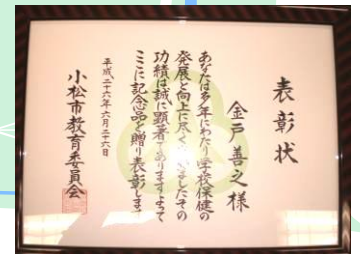 表彰状
金戸善之様
あなたは多年にわたり学校保健の
発展と向上に尽くされましたその
功績は誠に顕著でありますよって
ここに記念品を贈り表彰します
平成二十六年六月二十六日
小松市教育委員会